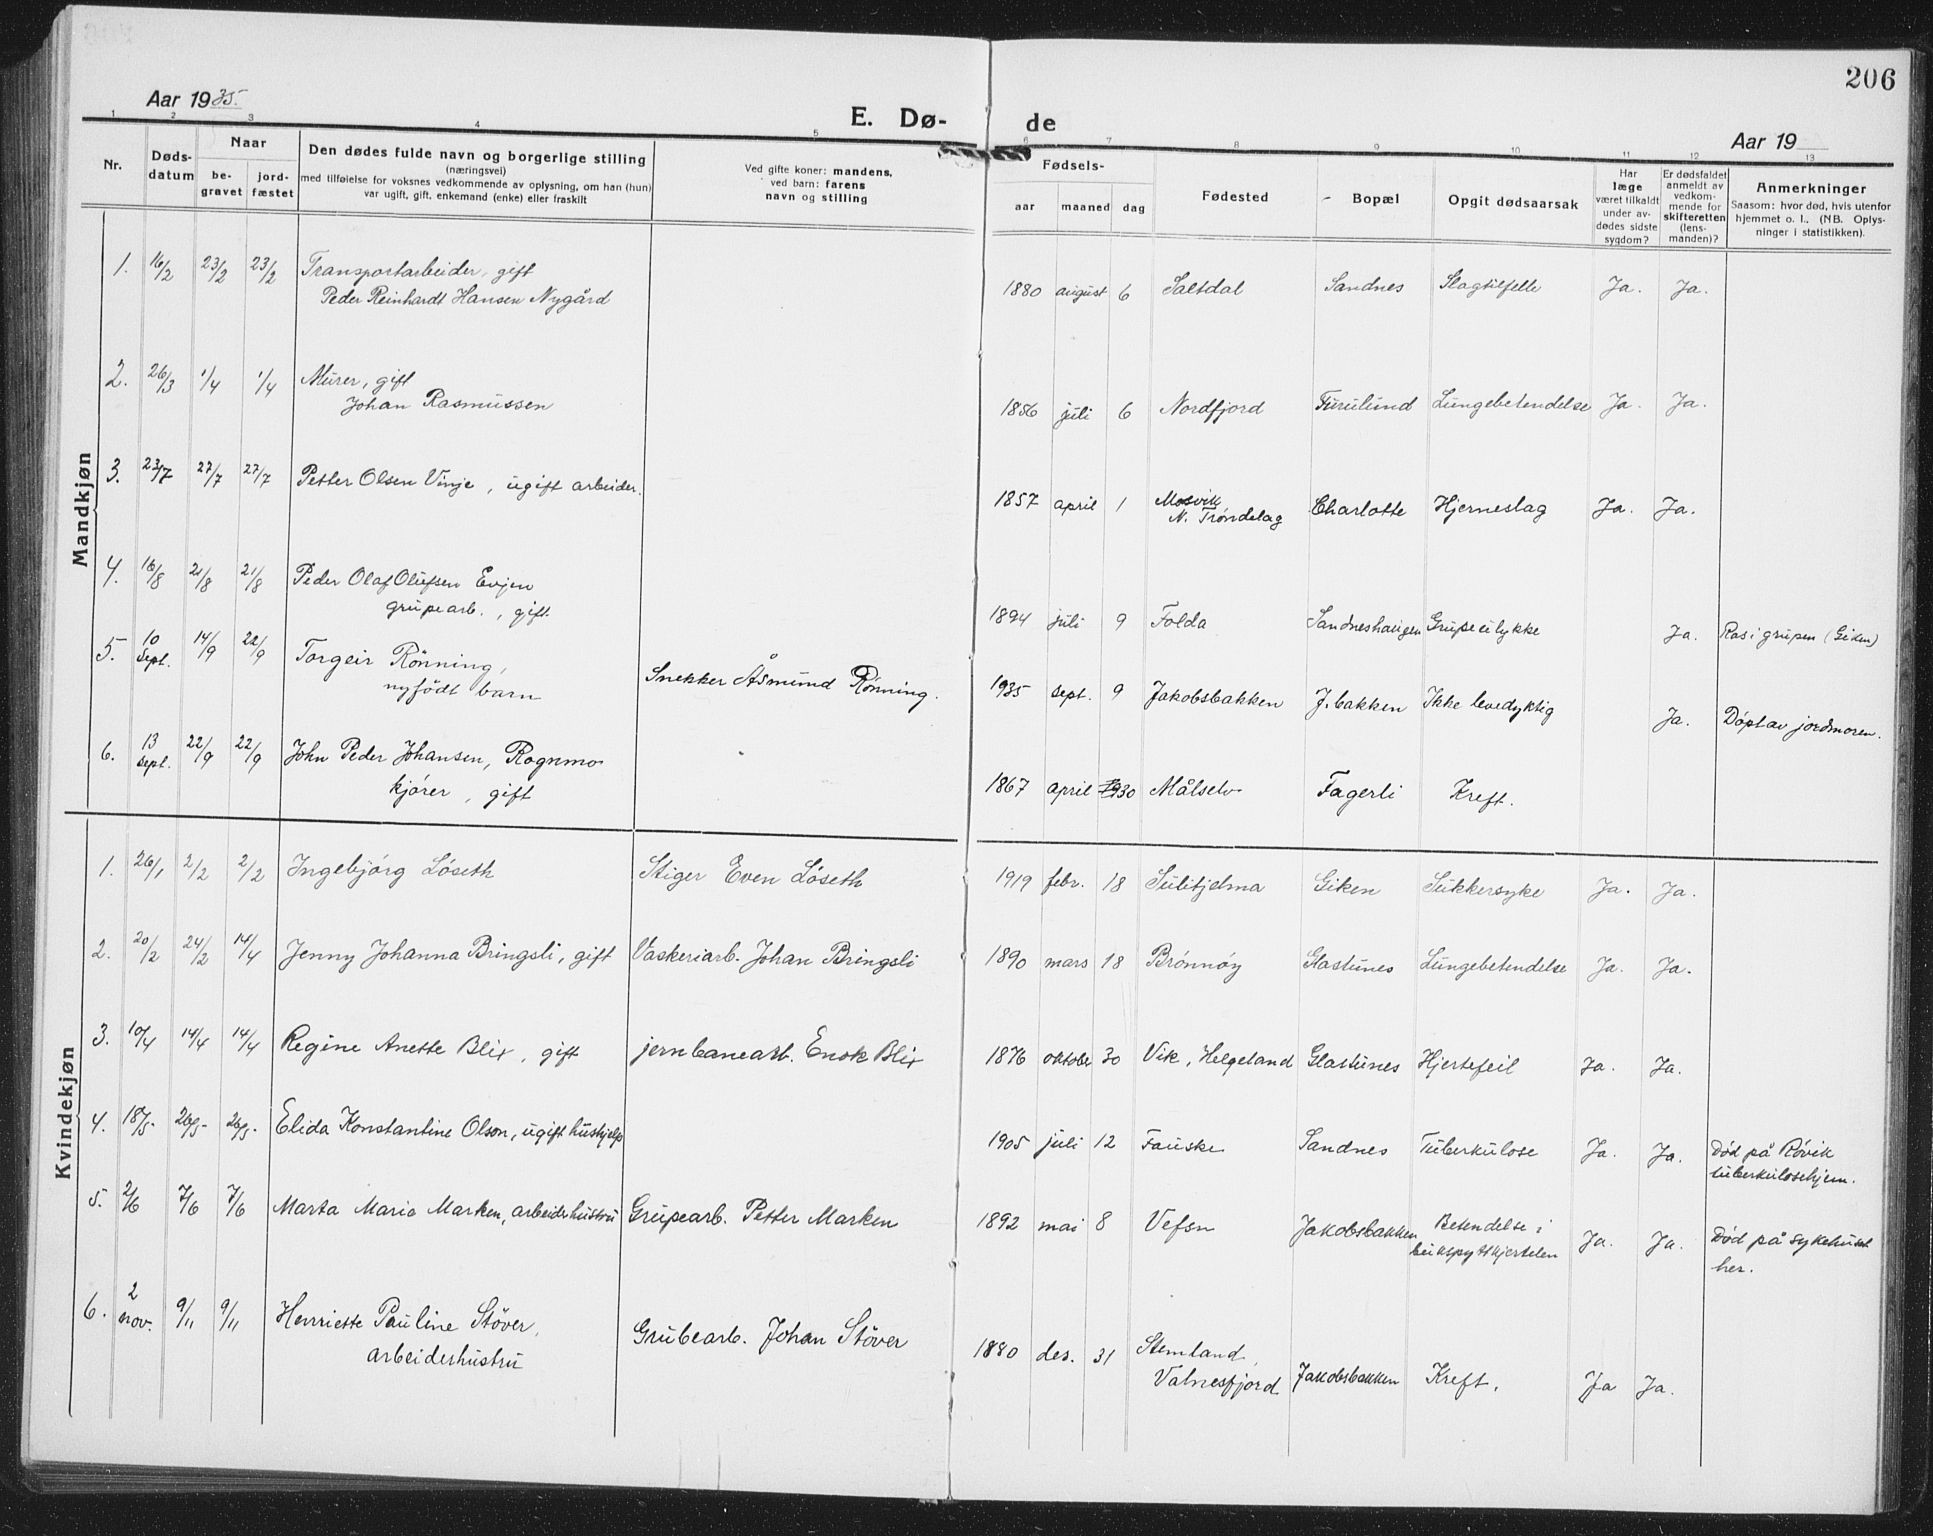 206
Aar 1935.
E. Dø-
de
Aar 19
1 2 3 4 5 6 7 8 9 10 11 12 13
Nr.
Døds-
datum
Naar
be-
gravet
jord-
fæstet
Den dødes fulde navn og borgerlige stilling
(næringsvei)
med tilføielse for voksnes vedkommende av oplysning, om han (hun)
var ugift, gift, enkemand (enke) eller fraskilt
Ved gifte koner: mandens,
ved barn: farens
navn og stilling
Fødsels-
aar maaned dag
Fødested
Bopæl
Opgit dødsaarsak
Har
læge
været tilkaldt
under av-
dødes sidste
sygdom?
Er dødsfaldet
anmeldt av
vedkom-
mende for
skifteretten
(lens-
manden)?
Anmerkninger
Saasom: hvor død, hvis utenfor
hjemmet o. l., (NB. Oplys-
ninger i statistikken).
Mandkjøn
1. 16/2 23/2 23/2 Transportarbeider, gift
Peder Reinhardt Hansen Nygård
1880 august 6 Saltdal Sandnes Slagtilfelle Ja. Ja.
2. 26/3 1/4 1/4 Murer, gift
Johan Rasmussen
1856 juli 6 Nordfjord Furulund Lungebetendelse Ja. Ja.
3. 23/7 27/7 27/7 Petter Olsen Vinje, ugift arbeider.
1857 april 1 Mosvik
N. Trøndelag Charlotte Hjerneslag Ja. Ja.
4. 16/8 21/8 21/8 Peder Olaf Olufsen Evjen
grupearb., gift.
1894 juli 9 Folda Sandneshaugen Grupeulykke Ja. Ras i grupen (Giken)
5. 10 Sept. 14/9 22/9 Torgeir Rönning,
nyfödt barn
Snekker Åsmund Rönning.
1935 sept. 9 Jakobsbakken J.bakken Ikke levedyktig Ja. Döpt av jordmoren.
6. 13 Sept. 22/9 22/9 John Peder Johansen, Rognmo
kjører, gift
1867 april 30 Målselv Fagerli Kreft.
Kvindekjøn
1. 26/1 2/2 2/2 Ingebjörg Löseth Stiger Even Löseth
1919 febr. 18 Sulitjelma Giken Sukkersyke Ja. Ja.
2. 20/2 24/2 14/4 Jenny Johanna Bringsli, gift Vaskeriarb. Johan Bringsli
1890 mars 18 Brönnöy Glastunes Lungebetendelse Ja. Ja.
3. 10/4 14/4 14/4 Regine Anette Blix, gift jernbanearb. Enok Blix
1876 oktober 30 Vik, Helgeland Glastunes Hjertefeil Ja. Ja.
4. 18/5 26/5 26/5 Elida Konstantine Olson, ugift hushjelp
1905 juli 12 Fauske Sandnes Tuberkulose Ja. Ja. Död på Rövik
tuberkulosehjem.
5. 2/6 7/6 7/6 Marta Marie Marken, arbeiderhustru Grupearb. Petter Marken
1892 mai 8 Vefsn Jakobsbakken Betendelse i
bukspyttkjertelen Ja. Ja. Död på sykehuset
her.
6. 2 nov. 9/11 9/11 Henriette Pauline Stöver,
arbeiderhustru
Grubearb. Johan Stöver
1880 des. 31 Stemland,
Valnesfjord Jakobsbakken Kreft. Ja Ja.